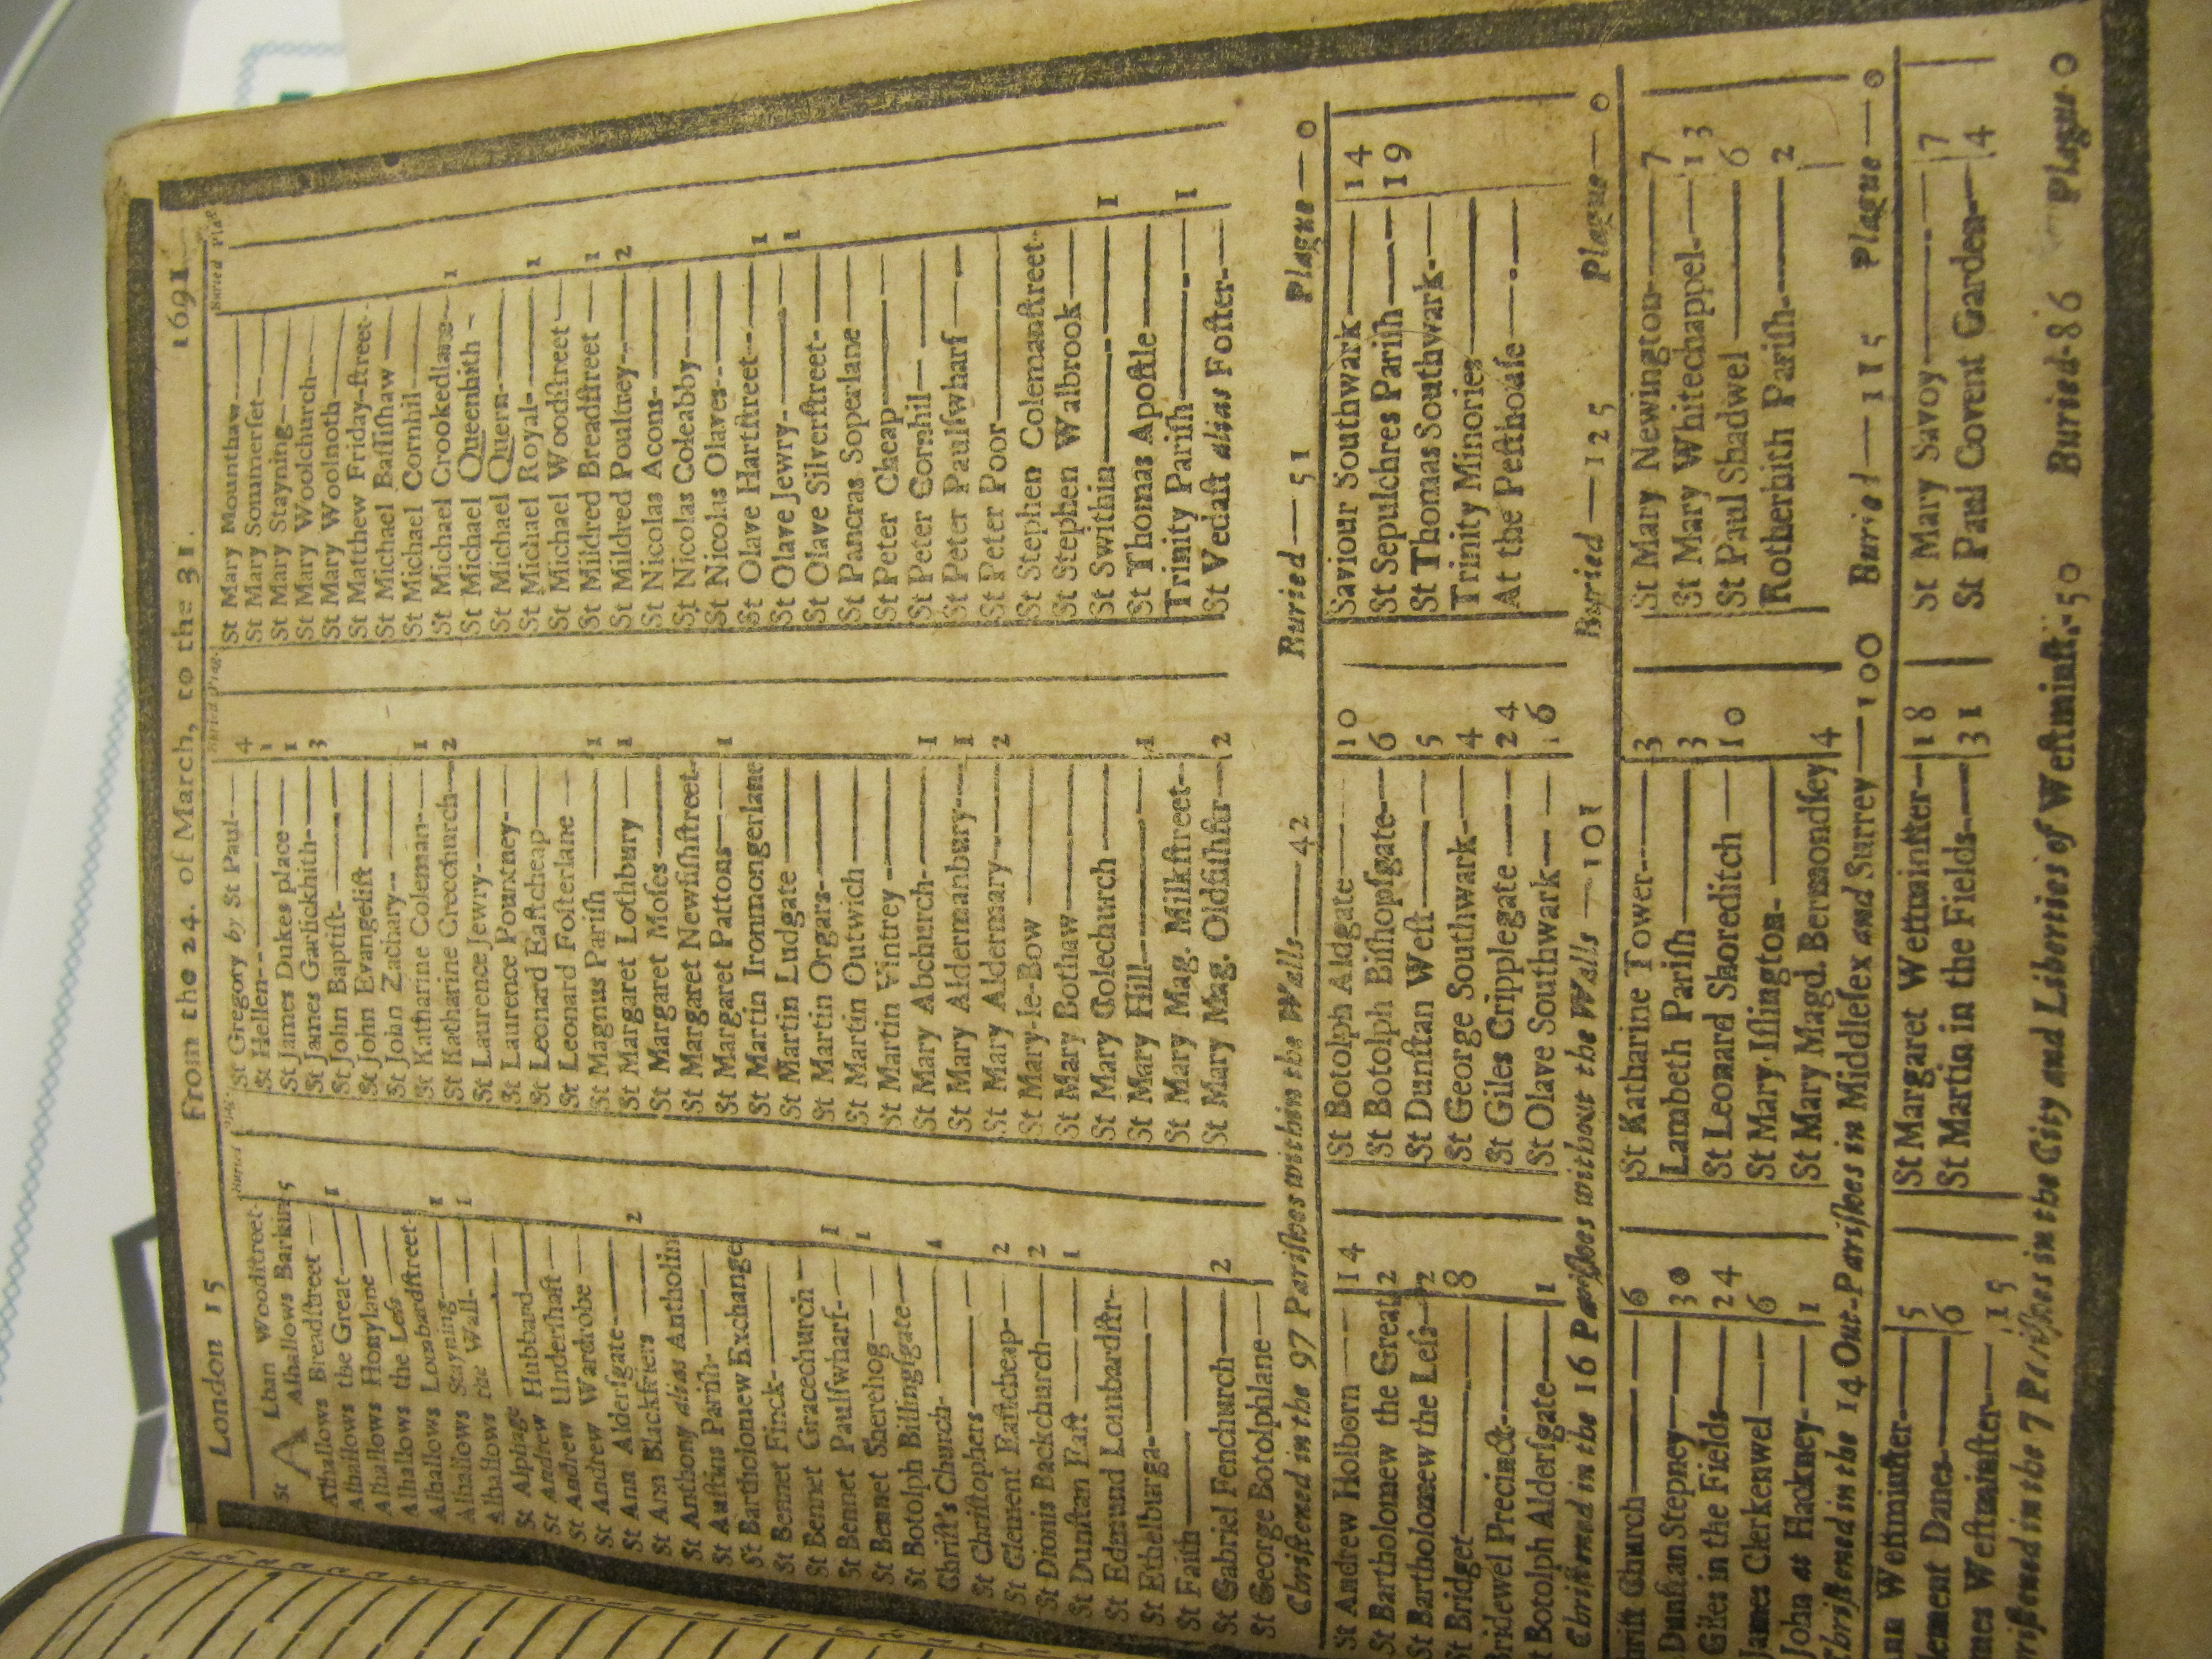 London 15 From the 24. of March, to the 31. 1691
Buried Plag.
St Alban Woodſtreet-
Alhallows Barking 5
Alhallows Breadſtreet —
Alhallows the Great— 1
Alhallows Honylane —
Alhallows the Leſs —
Alhallows Lombardſtreet- 1
Alhallows Stayning— 1
Alhallows the Wall-—
St Alphage —
St Andrew Hubbard—
St Andrew Underſhaft —
St Andrew Wardrobe —
St Ann Alderſgate— 2
St Ann Blackfriers —
St Anthony alias Antholin
St Auſtins Pariſh-—
St Bartholomew Exchange
St Bennet Finck-—
St Bennet Gracechurch — 1
St Bennet Paulſwharf-— 1
St Bennet Sherehog —
St Botolph Billingſgate— 1
Chriſt's Church-—
St Chriſtophers— 2
St Clement Eaſtcheap— 2
St Dionis Backchurch— 1
St Dunſtan Eaſt —
St Edmund Lombardſtr-
St Ethelburga-—
St Faith —
St Gabriel Fenchurch— 2
St George Botolphlane —
St Gregory by St Paul-— 4
St Hellen-— 1
St James Dukes place — 1
St James Garlickhith-— 3
St John Baptiſt-—
St John Evangeliſt —
St John Zachary-—
St Katharine Coleman-— 1
St Katharine Creechurch— 2
St Laurence Jewry-—
St Laurence Pountney-—
St Leonard Eaſtcheap—
St Leonard Foſterlane —
St Magnus Pariſh — 1
St Margaret Lothbury — 1
St Margaret Moſes—
St Margaret Newfiſhſtreet-
St Margaret Pattons— 1
St Martin Ironmongerlane
St Martin Ludgate —
St Martin Orgars-—
St Martin Outwich —
St Martin Vintrey -—
St Mary Abchurch-— 1
St Mary Aldermanbury-— 1
St Mary Aldermary-— 2
St Mary-le-Bow —
St Mary Bothaw—
St Mary Colechurch —
St Mary Hill— 1
St Mary Mag. Milkſtreet-
St Mary Mag. Oldfiſhſtr— 2
Buried Plag
St Mary Mounthaw—
St Mary Sommerſet—
St Mary Stayning-—
St Mary Woolchurch—
St Mary Woolnoth—
St Matthew Friday-ſtreet-
St Michael Baſſiſhaw —
St Michael Cornhil—
St Michael Crookedlane— 1
St Michael Queenhith -
St Michael Quern-—
St Michael Royal-— 1
St Michael Woodſtreet —
St Mildred Breadſtreet — 1
St Mildred Poultrey-— 2
St Nicolas Acons-—
St Nicolas Coleabby—
St Nicolas Olaves-—
St Olave Hartſtreet-— 1
St Olave Jewry-— 1
St Olave Silverſtreet-—
St Pancras Soperlane —
St Peter Cheap—
St Peter Cornhil— —
St Peter Paulſwharf —
St Peter Poor—
St Stephen Colemanſtreet-
St Stephen Walbrook —
St Swithin— 1
St Thomas Apoſtle—
Trinity Pariſh— 1
St Vedaſt alias Foſter-—
Chriſtened in the 97 Pariſhes within the Walls— 42 Buried — 51 Plague — 0
St Andrew Holborn — 14
St Bartholomew the Great 2
St Bartholomew the Leſs 2
St Bridget— 8
Bridewel Precinct-—
St Botolph Alderſgate— 1
St Botolph Aldgate— 10
St Botolph Biſhopſgate-— 6
St Dunſtan Weſt— 5
St George Southwark-— 4
St Giles Cripplegate — 24
St Olave Southwark— 16
Saviour Southwark— 14
St Sepulchres Pariſh — 19
St Thomas Southwark-—
Trinity Minories—
At the Peſthouſe —
Chriſtened in the 16 Pariſhes without the Walls — 101 Buried — 125 Plague — 0
hriſt Church— 6
Dunſtan Stepney— 30
Giles in the Fields— 24
James Clerkenwel — 6
John at Hackney-— 1
St Katharine Tower-— 3
Lambeth Pariſh— 3
St Leonard Shoreditch — 10
St Mary Iſlington- —
St Mary Magd. Bermondſey 4
St Mary Newington— 7
St Mary Whitechappel-— 13
St Paul Shadwel — 6
Rotherhith Pariſh-— 2
Chriſtened in the 14 Out-Pariſhes in Middleſex and Surrey— 100 Buried — 115 Plague — 0
nn Weſtminſter— 5
lement Danes— 6
mes Weſtminſter— 15
St Margaret Weſtminſter— 18
St Martin in the Fields— 31
St Mary Savoy— 7
St Paul Covent Garden— 4
riſtened in the 7 Pariſhes in the City and Liberties of Weſtminſt.- 50 Buried-86 Plague-0